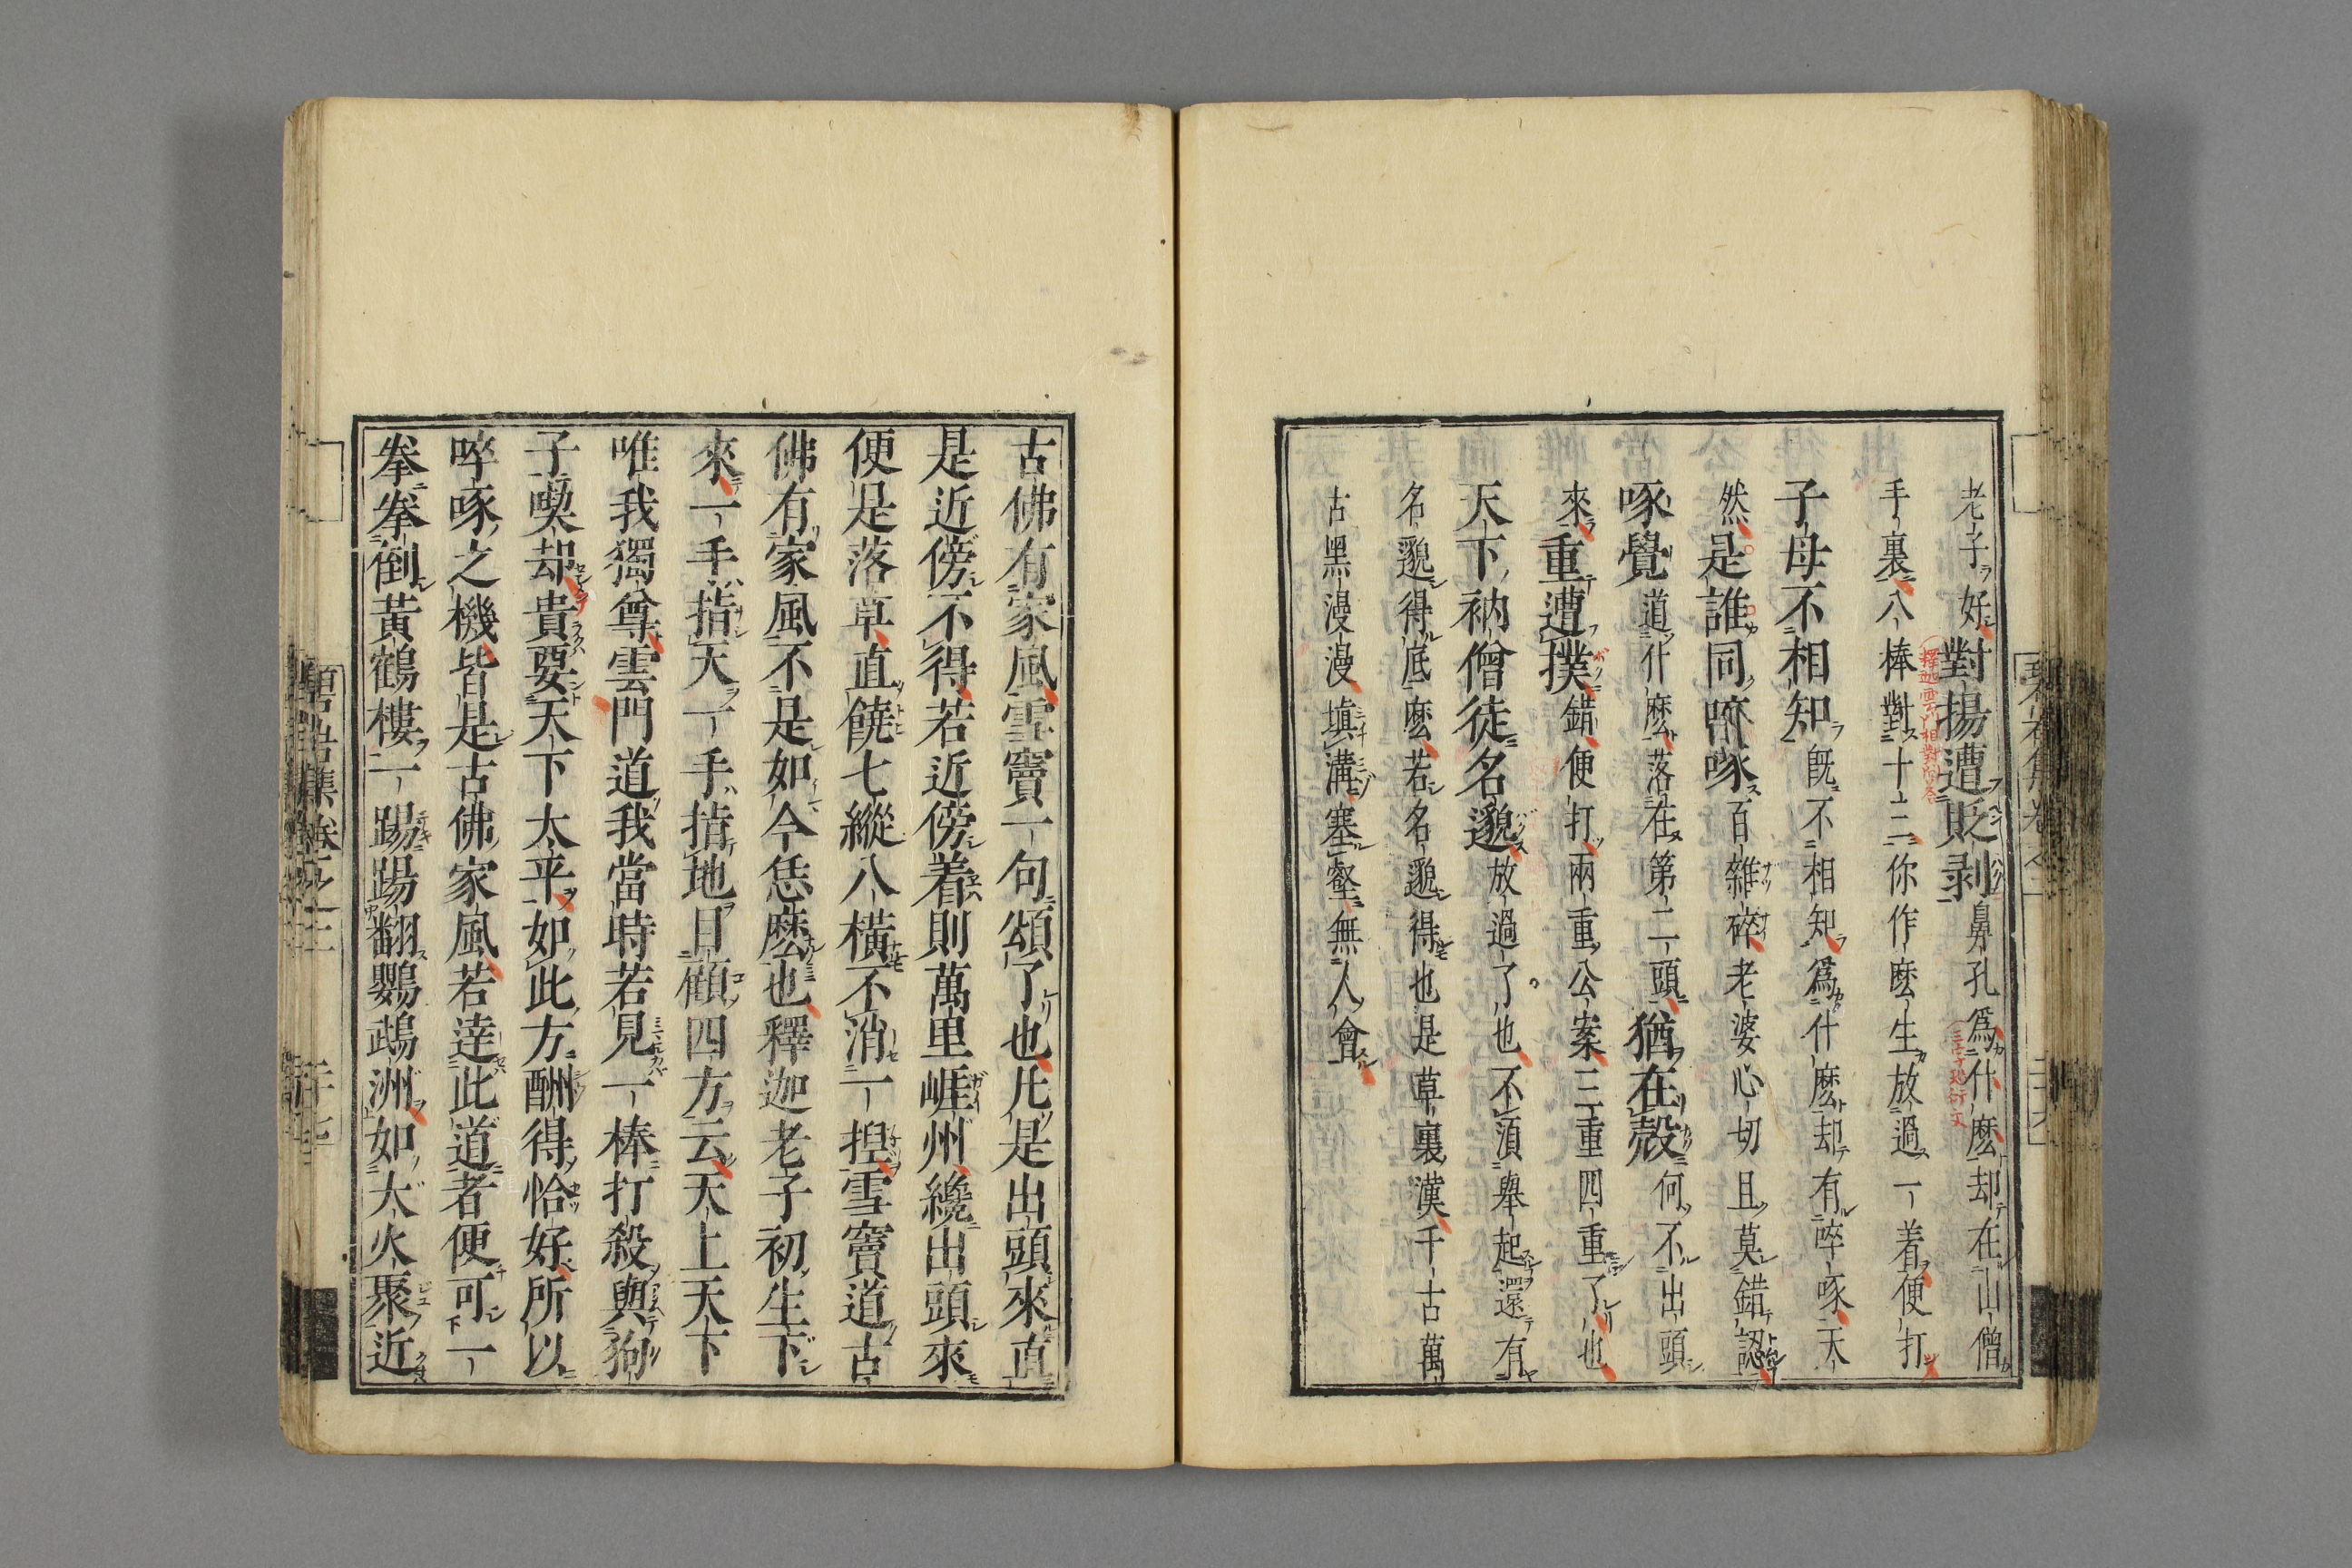 老子好對揚遭貶剥鼻孔爲什麽却在山僧
手裏八棒對十三你作麽生放過一着便打
子母不相知旣不相知爲什麽却有啐啄天
然是誰同啐啄百雜碎老婆心切且莫錯認
啄覺道什麽落在第二頭猶在殼何不出頭
來重遭撲錯便打兩重公案三重四重了也
天下衲僧徒名邈放過了也不須舉起還有
名邈得底麽若名邈得也是草裏漢千古萬
古黑漫漫填溝塞壑無人會
古佛有家風雪竇一句頌了也凡是出頭來直
是近傍不得若近傍着則萬里崕州纔出頭來
便是落草直饒七縱八橫不消一揑雪竇道古
佛有家風不是如今恁麽也釋迦老子初生下
來一手指天一手指地目顧四方云天上天下
唯我獨尊雲門道我當時若見一棒打殺與狗
子喫却貴要天下太平如此方酬得恰好所以
啐啄之機皆是古佛家風若達此道者便可一
拳拳倒黃鶴樓一踢踢翻鸚鵡洲如大火聚近